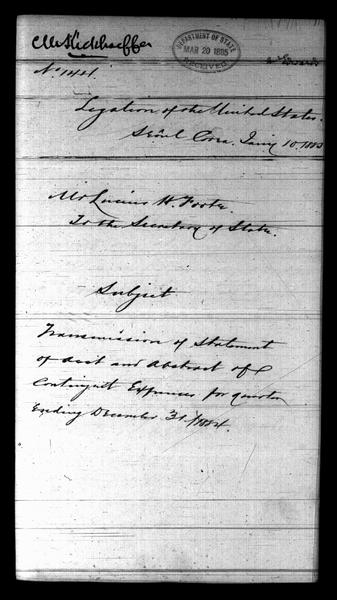 DEPARTMENT OF STATE
MAR 20 1885
RECEIVED
Mr Edwards
No 141.
Legation of the United States.
Seoul Corea. Jany 10. 1885
Mr Lucius H. Foote.
To the Secretary of State.
Subject
Transmission of Statement
of acct and Abstract of
Contingent Expenses for quarter
Ending December 31. 1884.